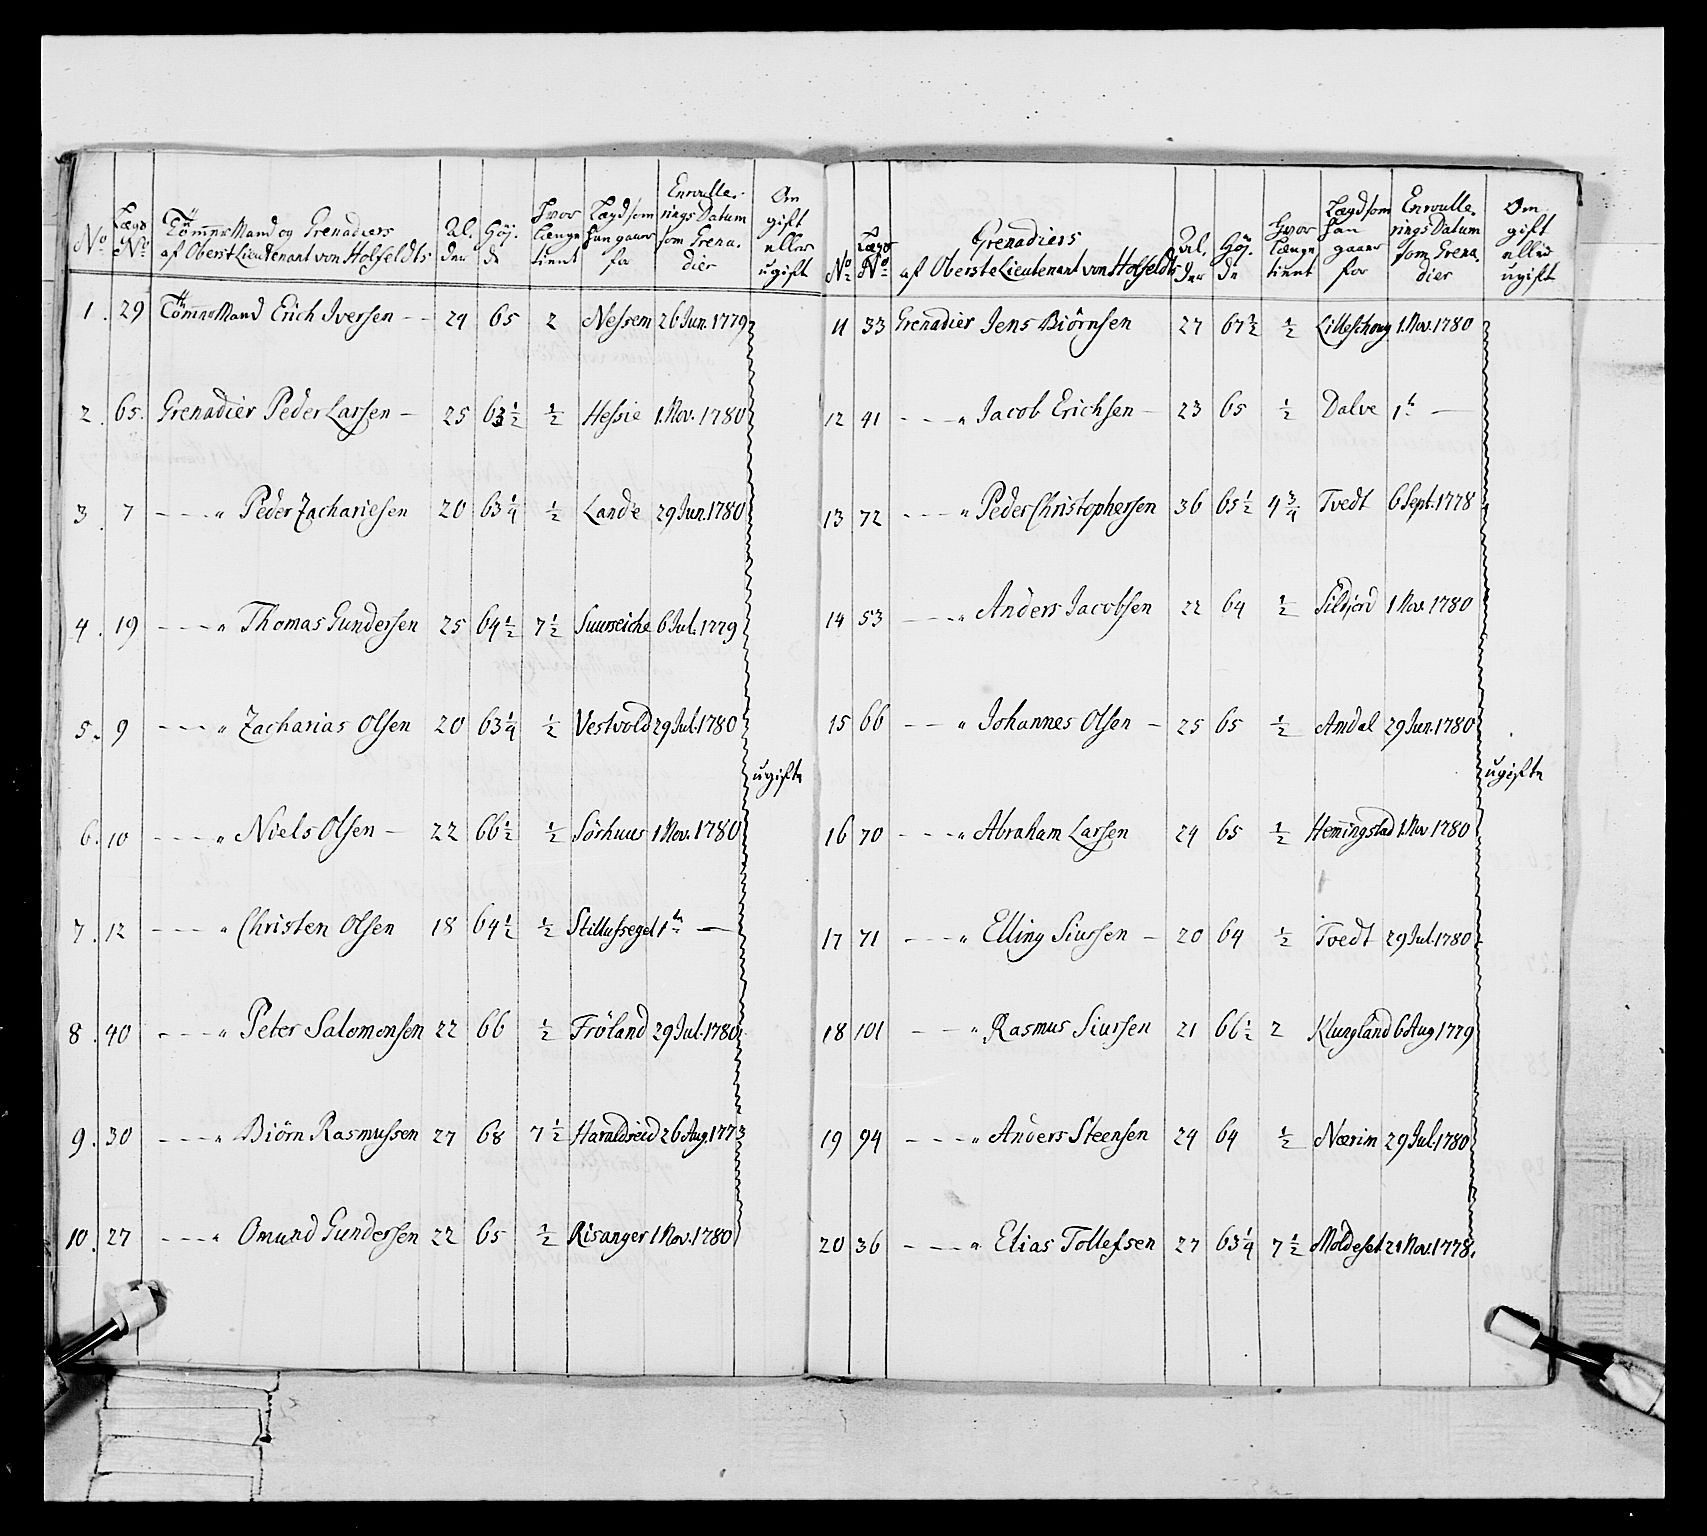 No
Lægs No
Tömmer Mand og Grenadiers
af Oberst Lieutenant von Holfeldts
Al. der
Höj. de
Hvor Længe tient
Lægd som han gaaer for
Enroulle. rings Datum som Grena. dier
Om gift eller ugift
1. 29 Tömmer Mand Erich Iversen - - 24 65 2 Nessem 26 Jun. 1779
2. 65. Grenadier Peder Larsen - 25 63 1/2 1/2 Hessie 1. Nov. 1780
3. 7 - - - " Peder Zachariesen 20 63 1/4 1/2 Lande 29 Jun. 1780
4. 19 - - - " Thomas Gundersen 25 64 1/2 7 1/2 Suureiche 6 Jul. 1779
5. 9 - - - " Zacharias Olsen 20 63 1/4 1/2 Vestvold 29 Jul. 1780
ugifte
6. 10 - - - " Niels Olsen - 22 66 1/2 1/2 Sörhuus 1. Nov. 1780
7. 12 - - - " Christen Olsen 18 64 1/2 1/2 Stillufsegel 1te —
8. 40 - - - " Peter Salomonsen 22 66 1/2 Fröland 29 Jul. 1780
9. 30 - - - " Biörn Rasmussen 27 68 7 1/2 Haraldseid 26 Aug. 1773
10. 27 - - - " Omund Gundersen 22 65 1/2 Risanger 1 Nov. 1780
No
Lægs No
Grenadiers
af Oberste Lieutenant von Holfeldts
Al. der
Höj. de
Hvor Længe tient
Lægd som han gaaer for
Enroulle. rings Datum som Grena. dier
Om gift eller ugift
11 33 Grenadier Jens Biörnsen 27 67 1/2 1/2 Lilleschoug 1. Nov. 1780
12 41 - - - " Jacob Erichsen - 23 65 1/2 Dalve 1te —
13 72 - - - " Peder Christophersen 36 65 1/2 4 3/4 Tvedt 6 Sept. 1778
14 53 - - - " Anders Jacobsen 22 64 1/2 Sildjord 1 Nov. 1780
15 66 - - " Johannes Olsen - 25 65 1/2 Amdal 29 Jun. 1780
ugifte
16 70 - - - " Abraham Larsen 24 65 1/2 Hemingstad 1. Nov 1780
17 71 - - - " Elling Siursen - 20 64 1/2 Tvedt 29 Jul. 1780
18 101 - - " Rasmus Siursen 21 66 1/2 2 Klungland 6 Aug 1779
19 94 - - - " Anders Steensen 24 64 1/2 Nærim 29 Jul. 1780
20 36 - - - " Elias Tollefsen 27 63 1/4 7 1/2 Moldeset 21 Nov. 1778.